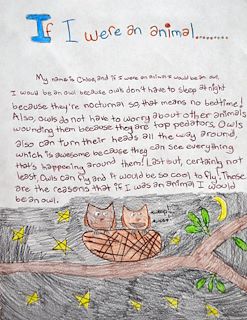 If I were an animal........
My name is Chloe, and if I were an animal I would be an owl.
I would be an owl because owls don't have to sleep at night
because they're nocturnal so that means no bedtime!
Also, owls do not have to worry about other animals
wounding them because they are top predators. Owls
also can turn their heads all the way around,
which is awesome because they can see everything
that's happening around them! Last but, certainly not
least, Owls can fly and it would be so cool to fly! Those
are the reasons that if I was an animal I would
be an owl.